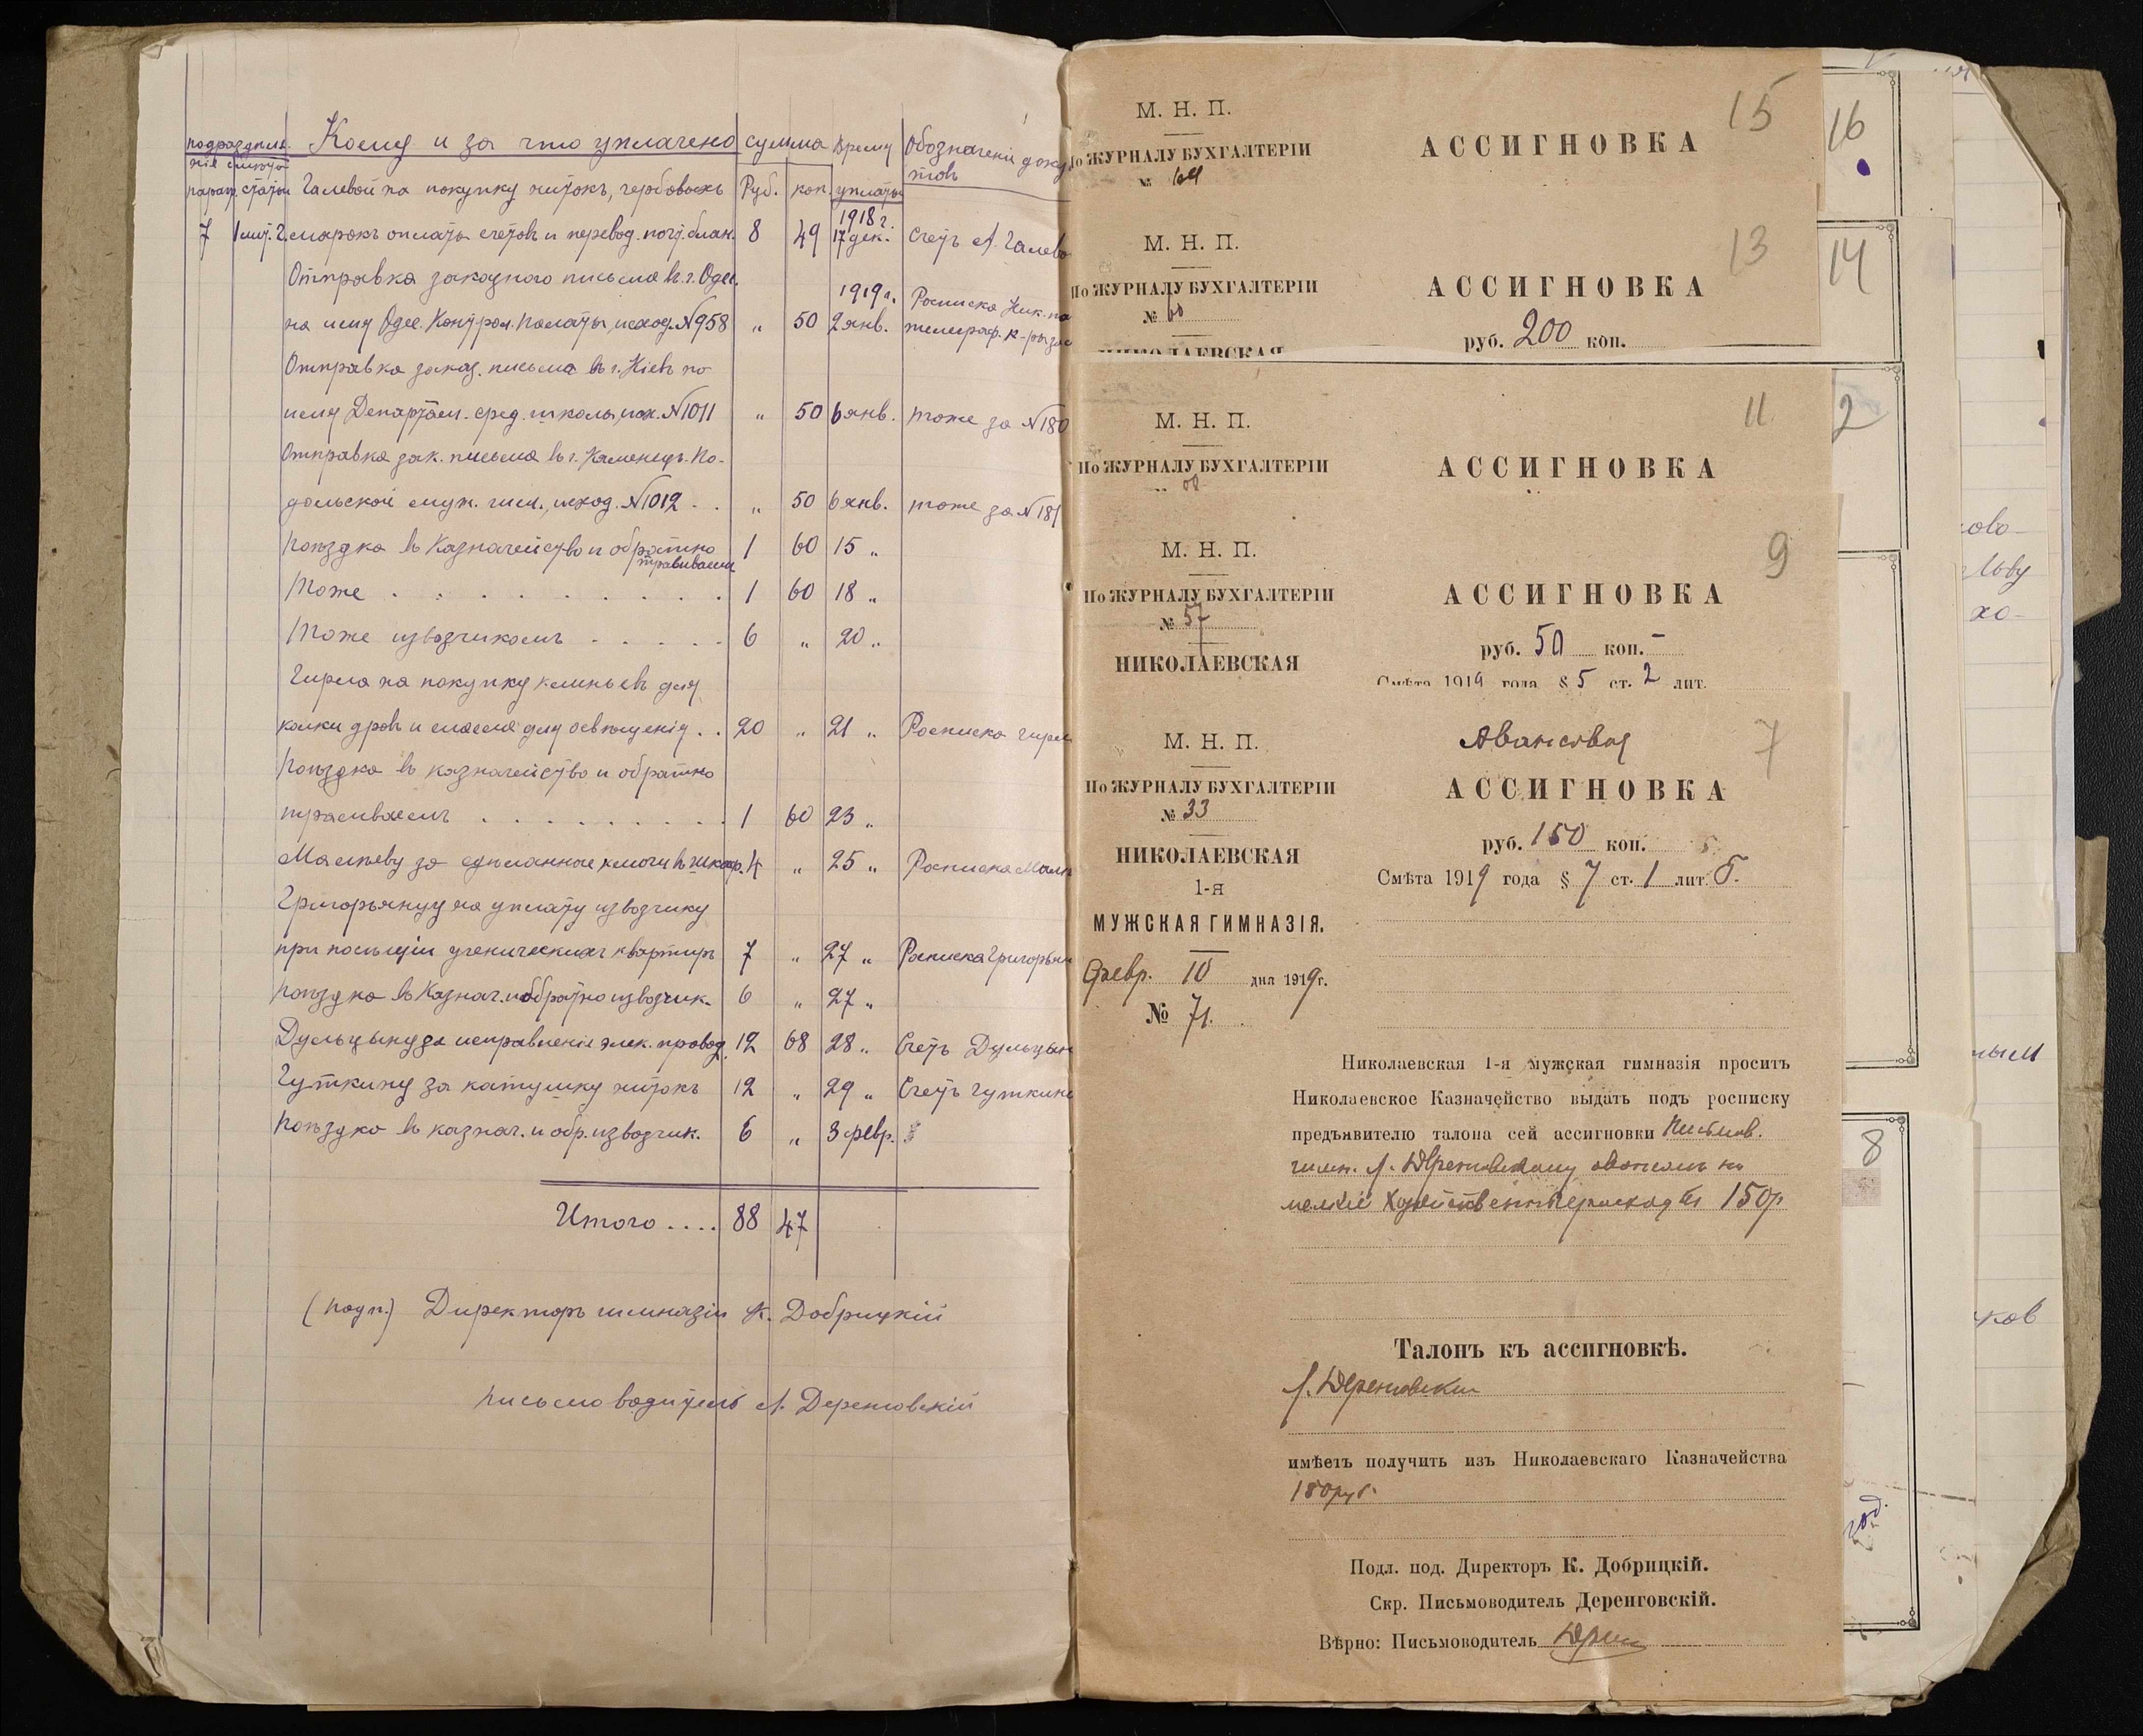 подраздѣле-
нія смѣты
парагр. статьи
Кому и за что уплачено
сумма
Руб. коп.
Время
уплаты
Обозначеніе доку
товъ
Галевой на покупку нитокъ, гербовыхъ
7 1 лит. г. марокъ оплаты счетовъ и перевод. почт. блан. 8 49 1918 г. 17 дек. Счетъ А. Галево
Отправка заказного письма въ г. Одес.
на имя Одес. Контрол. Палаты, исход. №958 " 50 1919 г. 2 янв. Росписка Ник. по
телеграф. к-ры за
Отправка заказ. письма въ г. Кіевъ по
исму Департам. сред. школы, исх. №1011 " 50 6 янв. тоже за №180
Отправка зак. письма въ г. Каменецъ-По-
дольской муж. гимн., исход. №1012 . . " 50 6 янв. тоже за №181
Поѣздка въ Казначейство и обратно 1 60 15 "
трамваемъ
Тоже . . . . . . . . . 1 60 18 "
Тоже извозчикомъ . . . . . 6 " 20 "
на покупку клиньевъ для
колки дровъ и масла для освѣщенія . . 20 " 21 " Росписка
Поѣздка въ казначейство и обратно
трамваемъ . . . . . . . . . 1 60 23 "
за сдѣланные ключи къ шкафу 4 " 25 " Росписка
Григорьянцу на уплату извозчику
при посѣщеніи ученическихъ квартиръ 7 " 27 " Росписка Григорьян
Поѣздка въ Казнач. и обратно извозчик. 6 " 27 "
Дульцыну за исправленіе элек. провод. 12 68 28 " Счетъ Дульцын
Гуткину за катушку нитокъ 12 " 29 " Счетъ Гуткина
Поѣздка въ казнач. и обр. извозчик. 6 " 3 февр.
Итого .... 88 47
(подп.) Директоръ гимназіи К. Добрицкій
письмоводитель А. Деренговскій
М. Н. П.
По ЖУРНАЛУ БУХГАЛТЕРІИ
№ 64
АССИГНОВКА
15
16
М. Н. П.
По ЖУРНАЛУ БУХГАЛТЕРІИ
№ 60
НИКОЛАЕВСКАЯ
АССИГНОВКА
13
14
руб. 200 коп.
М. Н. П.
По ЖУРНАЛУ БУХГАЛТЕРІИ
АССИГНОВКА
11
2
М. Н. П.
По ЖУРНАЛУ БУХГАЛТЕРІИ
№ 57
НИКОЛАЕВСКАЯ
9
АССИГНОВКА
руб. 50 коп. -
Смѣта 1919 года § 5 ст. 2 лит.
М. Н. П.
По ЖУРНАЛУ БУХГАЛТЕРІИ
№ 33
НИКОЛАЕВСКАЯ
1-я
МУЖСКАЯ ГИМНАЗІЯ.
Февр. 10 дня 1919 г.
№ 71.
Авансовая
7
АССИГНОВКА
руб. 150 коп.
Смѣта 1919 года § 7 ст. 1 лит. б.
Николаевская 1-я мужская гимназія проситъ
Николаевское Казначейство выдать подъ росписку
предъявителю талона сей ассигновки Письмов.
гимн. А. Деренговскому авансомъ на
мелкіе хозяйственные расходы 150 р
Талонъ къ ассигновкѣ.
А. Деренговскій
имѣетъ получить изъ Николаевскаго Казначейства
150 руб.
Подл. под. Директоръ К. Добрицкій.
Скр. Письмоводитель Деренговскій.
Вѣрно: Письмоводитель
8
ково